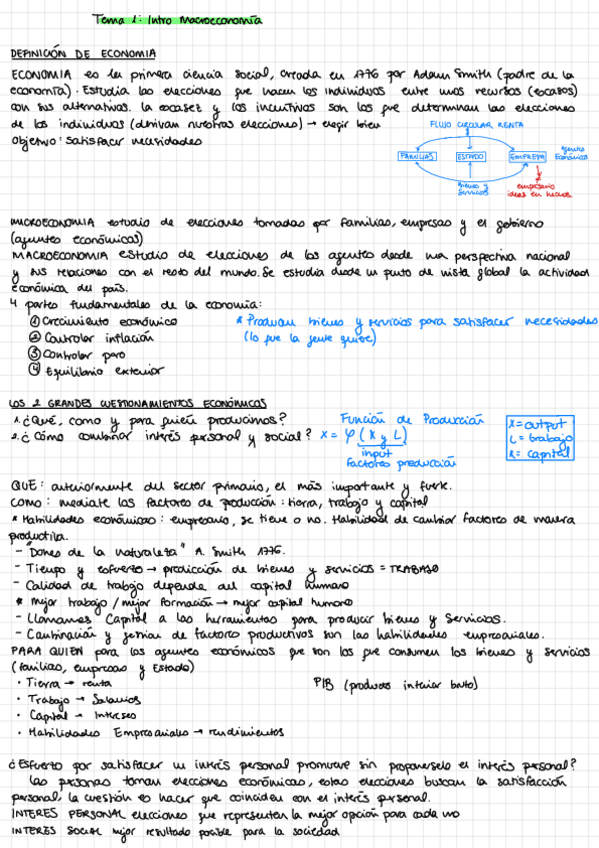 Tema 1: Intro Macroeconomía
DEFINICIÓN DE ECONOMIA
ECONOMIA es la primera ciencia social, creada en 1776 por Adam Smith (padre de la
economía). Estudia las elecciones que hacen los individuos entre unos recursos (escasos)
con sus alternativas. La escasez y los incentivos son los que determinan las elecciones
de los individuos (derivan nuestras elecciones) → elegir bien
Objetivo: satisfacer necesidades
FLUJO CIRCULAR RENTA
FAMILIAS ESTADO EMPRESA
Agentes Económicos
Bienes y servicios
empresario
ideas en hechos
MICROECONOMIA estudio de elecciones tomadas por familias, empresas y el gobierno
(agentes económicos)
MACROECONOMIA estudio de elecciones de los agentes desde una perspectiva nacional
y sus relaciones con el resto del mundo. Se estudia desde un punto de vista global la actividad
económica del país.
4 partes fundamentales de la economia:
① Crecimiento económico
② Controlar inflación
③ Controlar paro
④ Equilibrio exterior
* Producen bienes y servicios para satisfacer necesidades
(lo que la gente quiere)
LOS 2 GRANDES CUESTIONAMIENTOS ECONÓMICOS
1. ¿Qué, como y para quién producimos?
2. ¿Cómo combinar interés personal y social?
Función de Producción
X = φ (K y L)
input
Factores producción
X = output
L = trabajo
K = capital
QUE: anteriormente del sector primario, el más importante y fuerte.
COMO: mediate los factores de producción: tierra, trabajo y capital
* Habilidades económicas: empresario, se tiene o no. Habilidad de cambiar factores de manera
productiva.
- "Dones de la naturaleza" A. Smith 1776.
- Tiempo y esfuerzo → producción de bienes y servicios = TRABAJO
- Calidad de trabajo depende del capital humano
* Mejor trabajo / mejor formación → mejor capital humano
- Llamamos Capital a las herramientas para producir bienes y servicios.
- Combinación y gestion de factores productivos son las habilidades empresariales.
PARA QUIEN para los agentes económicos que son los que consumen los bienes y servicios
(familias, empresas y Estado)
· Tierra → renta
· Trabajo → Salarios
· Capital → Intereses
· Habilidades Empresariales → rendimientos
PIB (producto interior bruto)
¿Esfuerzo por satisfacer un interés personal promueve sin proponerselo el interés personal?
Las personas toman elecciones económicas, estas elecciones buscan la satisfacción
personal, la cuestión es hacer que coinciden con el interés personal.
INTERES PERSONAL elecciones que representan la mejor opción para cada uno
INTERES SOCIAL mejor resultado posible para la sociedad